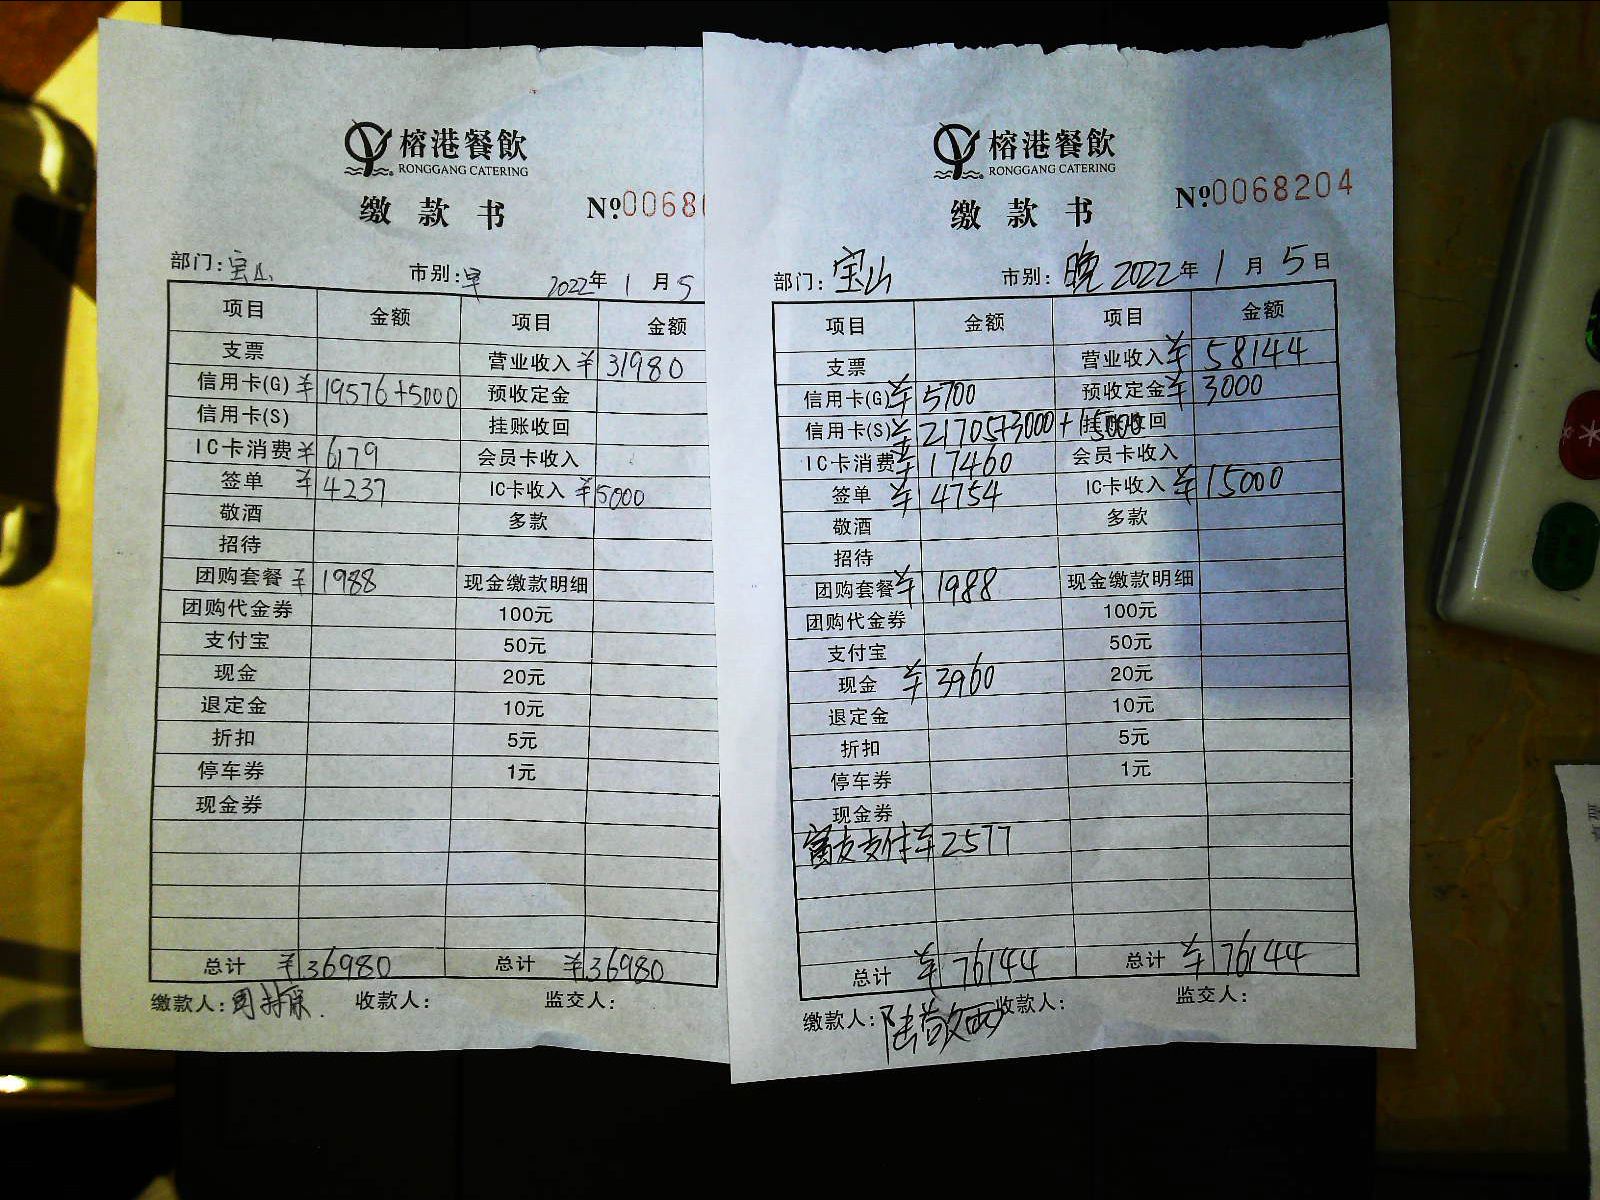 榕港餐飲
RONGGANG CATERING
缴款书 №0068
部门:宝山 市别:早 2022年1月5
项目 金额 项目 金额
支票 营业收入 ¥31980
信用卡(G) ¥19576+5000 预收定金
信用卡(S) 挂账收回
IC卡消费 ¥6179 会员卡收入
签单 ¥4237 IC卡收入 ¥5000
敬酒 多款
招待
团购套餐 ¥1988 现金缴款明细
团购代金券 100元
支付宝 50元
现金 20元
退定金 10元
折扣 5元
停车券 1元
现金券
总计 ¥36980 总计 ¥36980
缴款人: 收款人: 监交人:
榕港餐飲
RONGGANG CATERING
缴款书 №0068204
部门:宝山 市别:晚 2022年1月5日
项目 金额 项目 金额
支票 营业收入 ¥58144
信用卡(G) ¥5700 预收定金 ¥3000
信用卡(S) ¥21705+3000+15000 挂账收回
IC卡消费 ¥17460 会员卡收入
签单 ¥4754 IC卡收入 ¥15000
敬酒 多款
招待
团购套餐 ¥1988 现金缴款明细
团购代金券 100元
支付宝 50元
现金 ¥3960 20元
退定金 10元
折扣 5元
停车券 1元
现金券
富友支付 ¥2577
总计 ¥76144 总计 ¥76144
缴款人:陆敬西 收款人: 监交人: